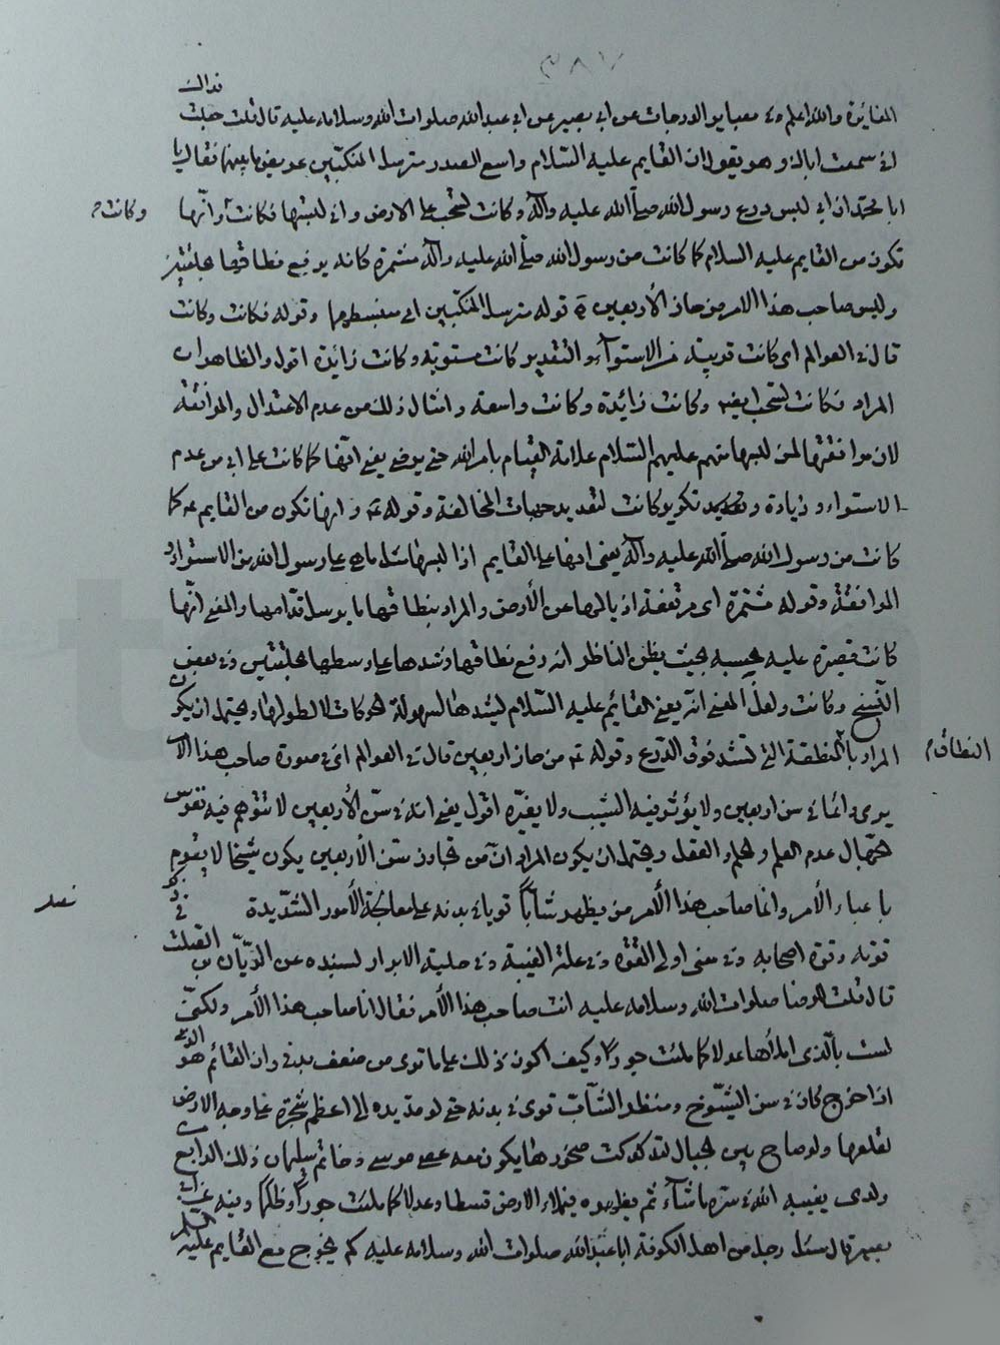 ٣٨٧
فداك
المغايرة والله اعلم وفي بصاير الدرجات عن ابي بصير عن ابي عبدالله صلوات الله وسلامه عليه قال قلت جعلت
اني سمعت اباك و هو يقول ان القايم عليه السّلام واسع الصدر مترسل المنكبين عريض ما بينهما فقال يا
ابا محمد ان ابي لبس درع رسول الله صلّى الله عليه وآله وكانت تستحب على الارض واني لبستها فكانت وانّها
وكانت
تكون من القايم عليه السلام كما كانت من رسول الله صلى الله عليه وآله مشمّرة كانه يرفع نطاقها بحلقتين
وليس صاحب هذا الامر من جاز الأربعين قوله مترسل المنكبين اي منبسطهما وقوله فكانت وكانت
قال في العوالم اي كانت قريبة من الاستوآء والتقدير كانت مستوية وكانت زائدة اقول والظاهر ان
المراد فكانت تستحب ايضا وكانت زائدة وكانت واسعة وامثال ذلك من عدم الاعتدال والموافقة
لان موافقتها لمن لبسها منهم عليهم السّلام علامة القيام بامر الله حتى يرضى يعني انها كما كانت على ابي من عدم
الاستواء و زيادة تكرير كانت لتعديد جهات المخالفة وقوله وانها تكون من القايم كما
كانت من رسول الله صلّى الله عليه وآله يعني انها على القايم اذا لبسها مثل ما هي على رسول الله من الاستواء و
الموافقة وقوله مشمّرة اي مرتفعة اذيالها عن الأرض والمراد بنطاقها ما يرسل قدامها والمعنى انّها
كانت قصيرة عليه بحيث يظن الناظر انه رفع نطاقها وشدها على وسطها بحلقتين وفي بعض
النّسخ وكانت ولعلّ المعنى انّه يعني القائم عليه السّلام ليشدها لسهولة الحركات لا لطولها ويحتمل ان يكون
المراد بالمنطقة التي تشد فوق الدرع وقوله من جاز اربعين قال في العوالم اي في صورة صاحب هذا الامر
النطاق
يرى دائما في سن اربعين ولا يؤثر فيه الشيب ولا يغيّره اقول يعني انه في سنّ الأربعين لا تتوهم فيه نفوس
الجهّال عدم العلم والحلم والعقل ويحتمل ان يكون المراد انّ من تجاوز سنّ الأربعين يكون شيخا لا يقوم
باعباء الأمر وانما صاحب هذا الأمر من يظهر شابّا قويا في بدنه على معالجة الأمور الشّديدة
فصل
قوته وقوة اصحابه وفي معنى اولى القوة وفي علة الغيبة وفي حلية الابرار بسنده عن الريّان بن الصلت
قال قلت للرضا صلوات الله وسلامه عليه انت صاحب هذا الأمر فقال انا صاحب هذا الأمر ولكنّي
لست بالّذي املأها عدلا كما ملئت جورا وكيف اكون ذلك على ما ترى من ضعف بدني وان القائم هو الذي
اذا خرج كان في سن الشيّوخ ومنظر الشّابّ قوي في بدنه حتى لو مدّ يده الى اعظم شجرة على وجه الارض
لقلعها ولو صاح بين الجبال لتدكدكت صخورها يكون معه عصى موسى وخاتم سليمان ذلك الرابع من
ولدى يغيبه الله في ستره ما شآء ثم يظهره فيملاء الارض قسطا وعدلا كما ملئت جورا وظلما وفيه عن ابي
بصير قال سئل رجل من اهل الكوفة ابا عبدالله صلوات الله وسلامه عليه كم يخرج مع القايم عليه السلام